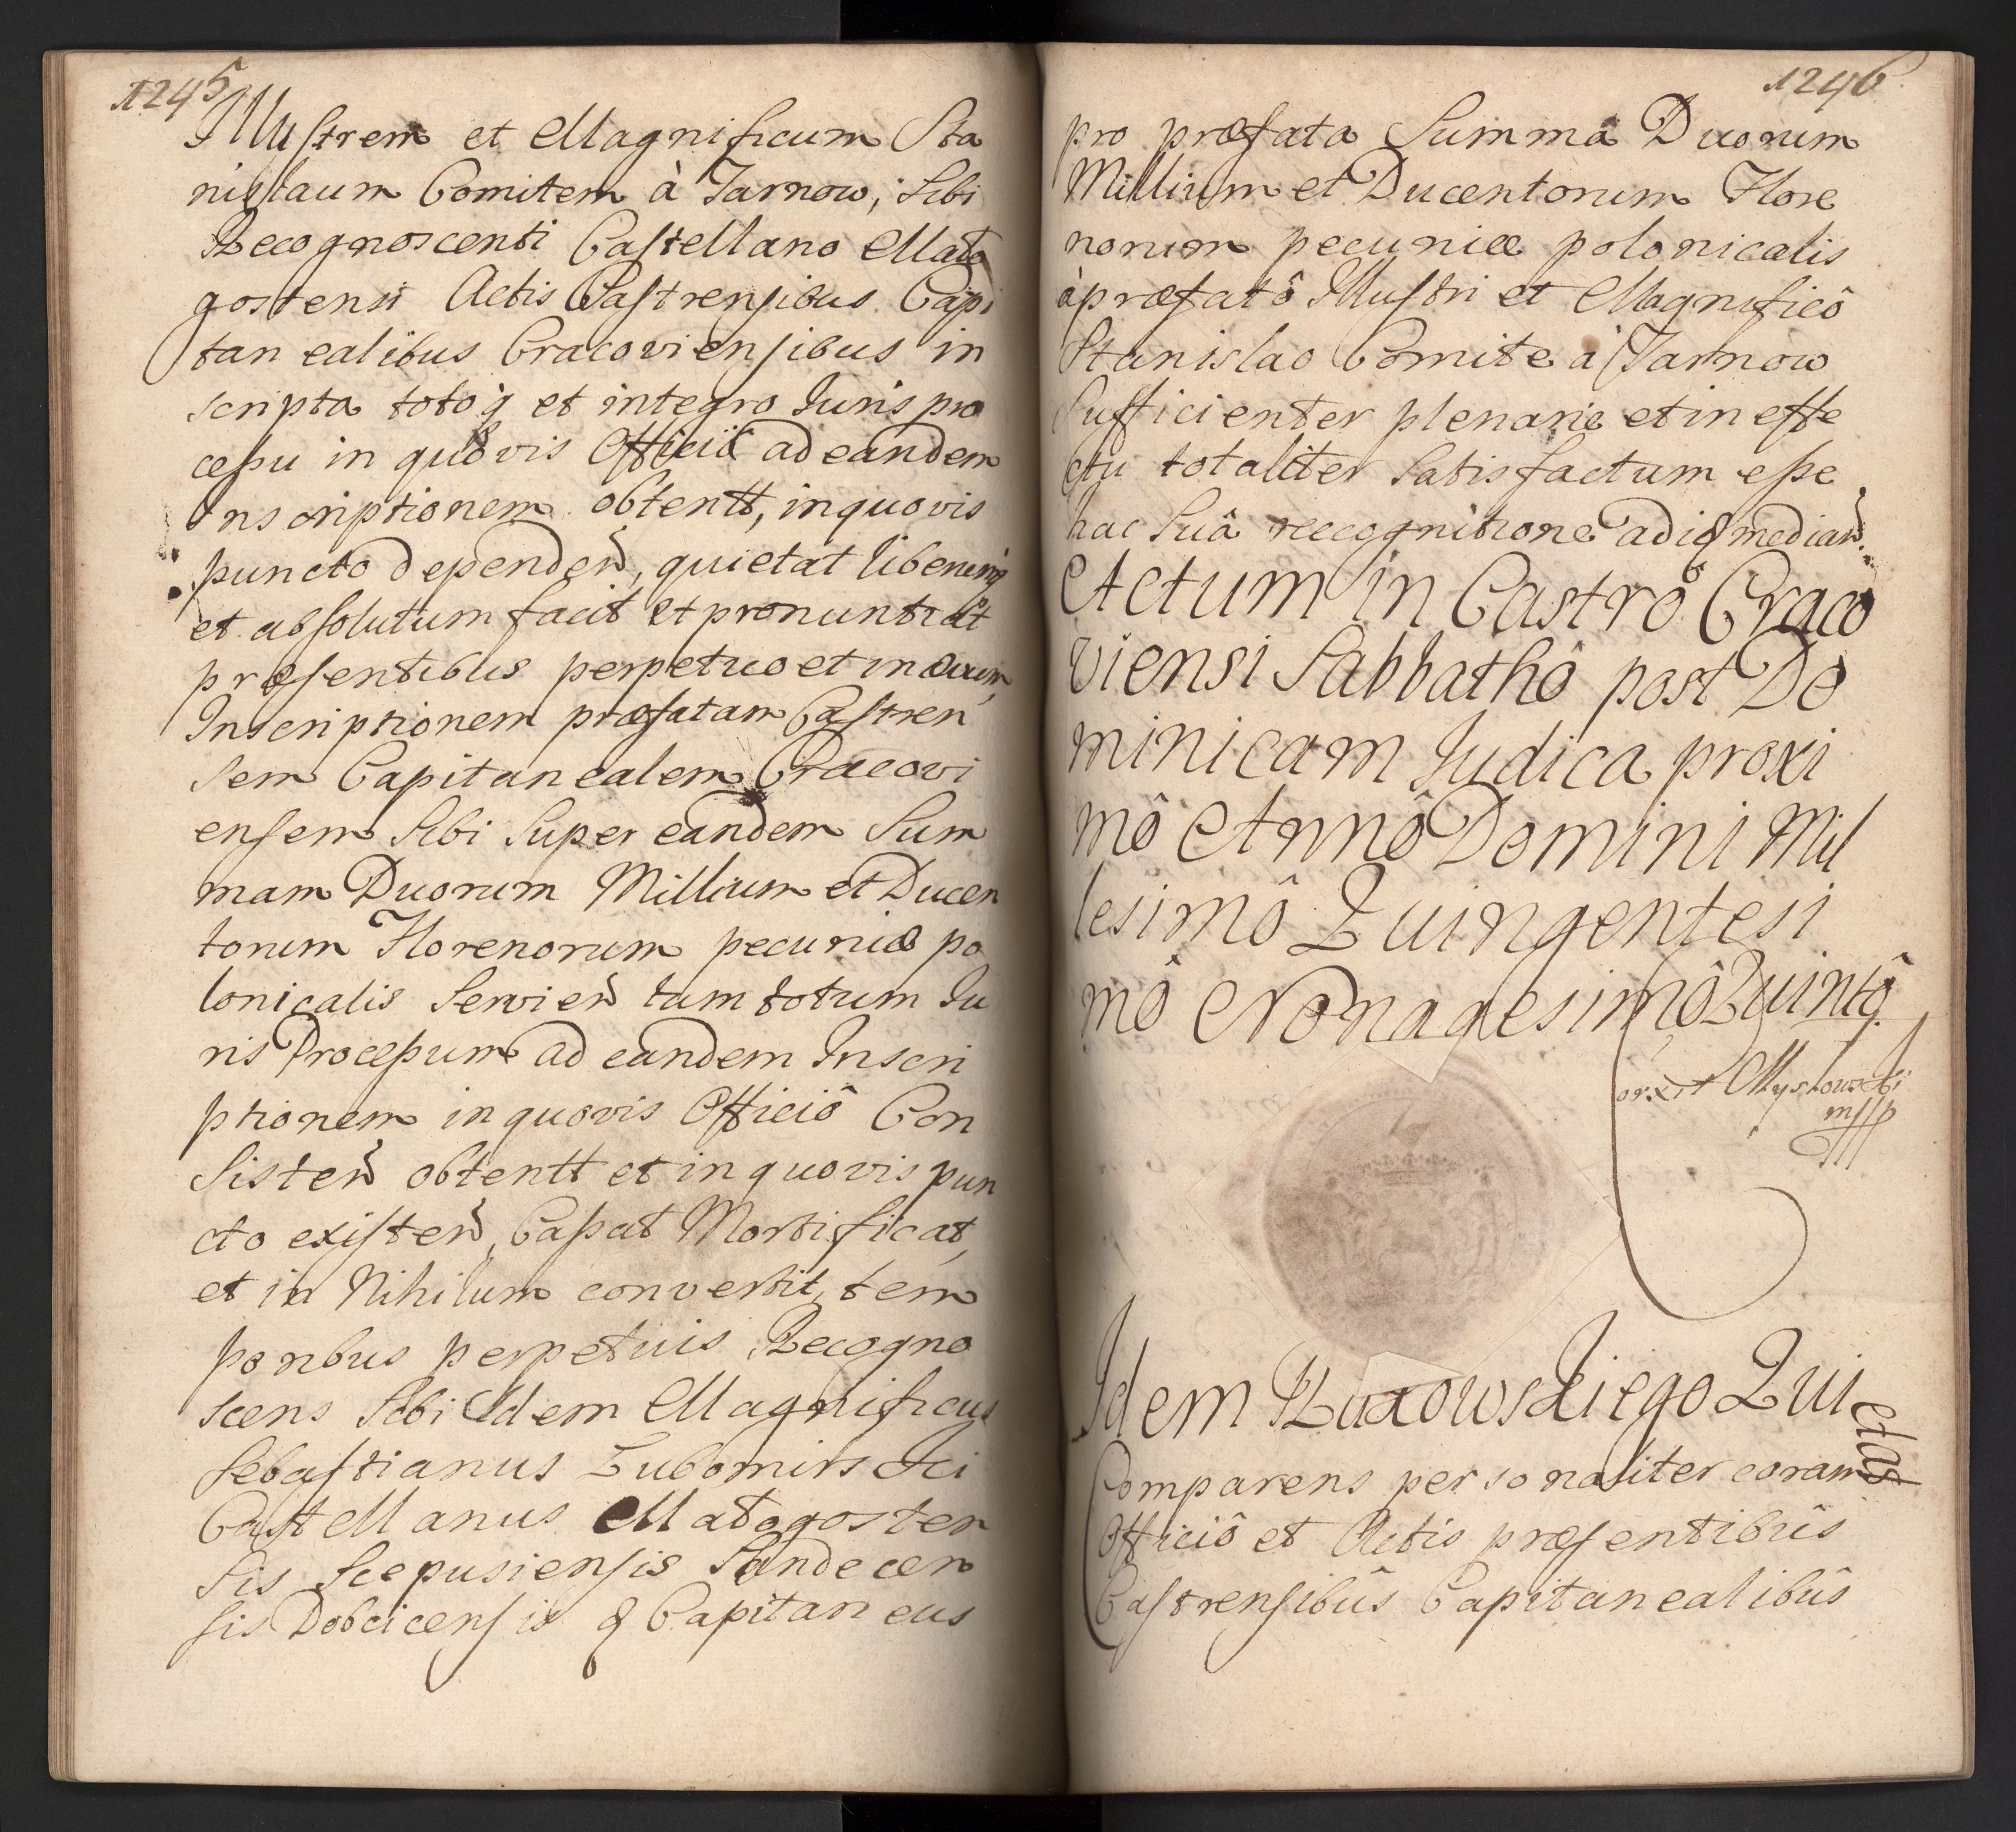 1245
Illustrem et Magnificum Sta
nislaum Comitem à Tarnow, Sibi
Recognoscenti Castellano Mało
gostensi Actis Castrensibus Capi
tanealibus Cracoviensibus in
scripta totoq et integro Juris pro
cessu in quôvis Officiô ad eandem
Inscriptionem obtentt, inquovis
puncto dependen, quietat liberumq
et absolutum facit et pronuntiat
præsentibus perpetuo et in ævum,
Inscriptionem præfatam Castren
sem Capitanealem Cracovi
ensem Sibi Super eandem Sum
mam Duorum Millium et Ducen
torum Florenorum pecuniæ po
lonicalis Servien tam totum Ju
ris Processum ad eandem Inscri
ptionem in quovis Officiô Con
Sisten obtentt et in quovis pun
cto existen, Cassat Mortificat,
et in Nihilum convertit, tem
poribus perpetuis, Recogno
scens Sibi Idem Magnificus
Sebastianus Lubomirski
Castellanus Małogosten
Sis Scepusiensis Sandecen
sis Dobcicensis q Capitaneus
1246
pro præfata Summa Duorum
Millium et Ducentorum Flore
norum pecuniæ polonicalis
à præfatô Illustri et Magnificô
Stanislao Comite à Tarnow
Sufficienter plenarie et in effe
ctu totaliter Satisfactum esse
hac Suâ recognitione ad id median.
Actum in Castrô Craco
viensi Sabbathô post Do
minicam Judica proxi
mô Annô Domini Mil
lesimô Quingentesi
mô Nonagesimô Quintô
orxit Mysłowski
mpp
Idem Ruxowskiego Qui
etat
Comparens personaliter coram
Officiô et Actis præsentibûs
Castrensibûs Capitanealibûs